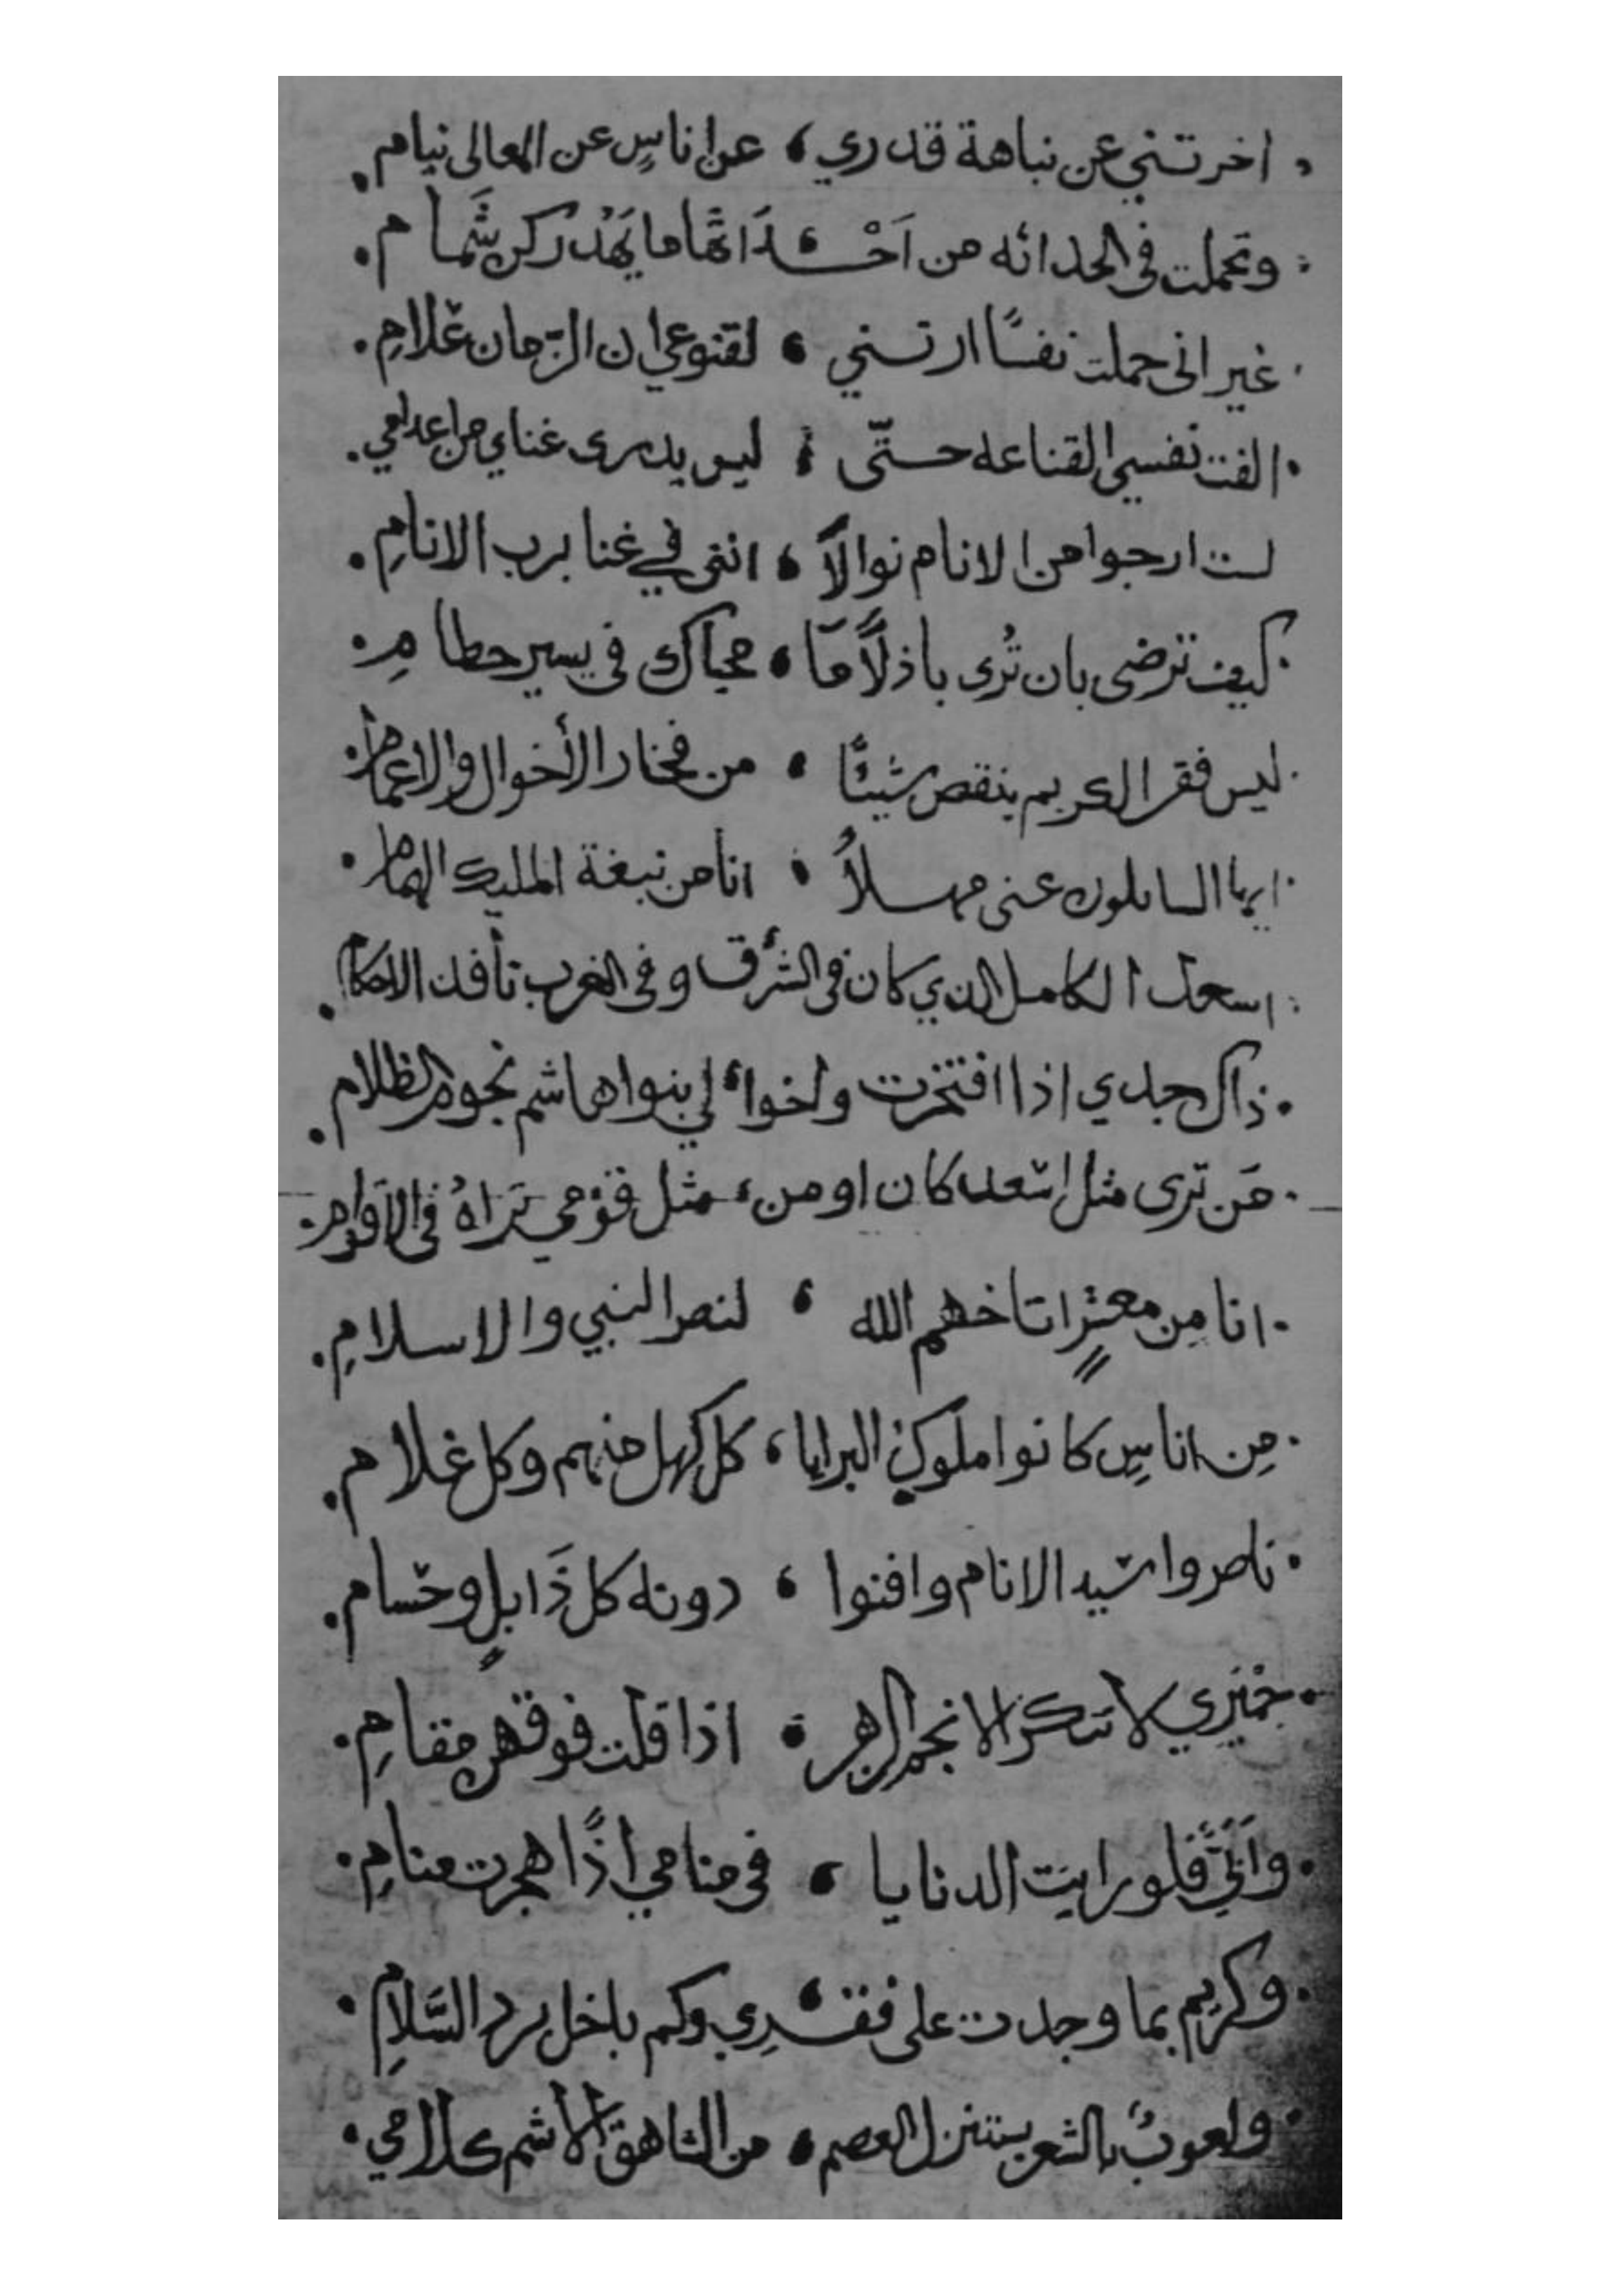 اخرتني عن نباهة قدري ، عن اناسٍ عن المعالى نيام
وتحملت في الحداثه من اَحْــدَاثها ما يَهُد ركن شَمام
غير انى حملت نفسًا ارتسني ، لقنوعي ان الزمان غلامِ
الفت نفسي القناعه حتّى ، ليس يدرى غناي من اعدامي
لست ارجوا من الانام نوالاً ، اننى في غنا برب الانامِ
كيف ترضى بان تُرى باذلاً مَا ، محياك في يسير حطامِ
ليس فقر الكريم ينقص شيئًا ، من فخار الأخوال والاعمام
ايها السايلون عنى مهلاً ، انا من نبغة المليك الهمام
اسعد الكامل الذي كان في الشرق وفى الغرب نافذ الاحكام
ذاك جدي اذا افتخرت واخوا، لي بنوا هاشم نجوم الظلام
مَن ترى مثل اسْعد كان او من ، مثل قوْمي تَراهُ في الاقوامِ
انا مِن معشرٍ اتاخهم الله ، لنصر النبي والاسلامِ
مِن اناسٍ كانوا ملوك البرايا ، كل كهل منهم وكل غلام
ناصروا سيد الانام وافنوا ، دونه كل ذَابلٍ وحسام
حِمْيَري لا تنكر الانجم الزهر ، اذا قلت فوقهن مقامِ
وَاَبَيٌّ فلو رايت الدنايا ، في منامي اذًا هجرت منامِ
وكريم بما وجدت على فقــدِي وكم باخل برد السَّلامِ
ولعوبٌ بالشعر يستنزل العصم ، من الشاهق الاشم كلامي